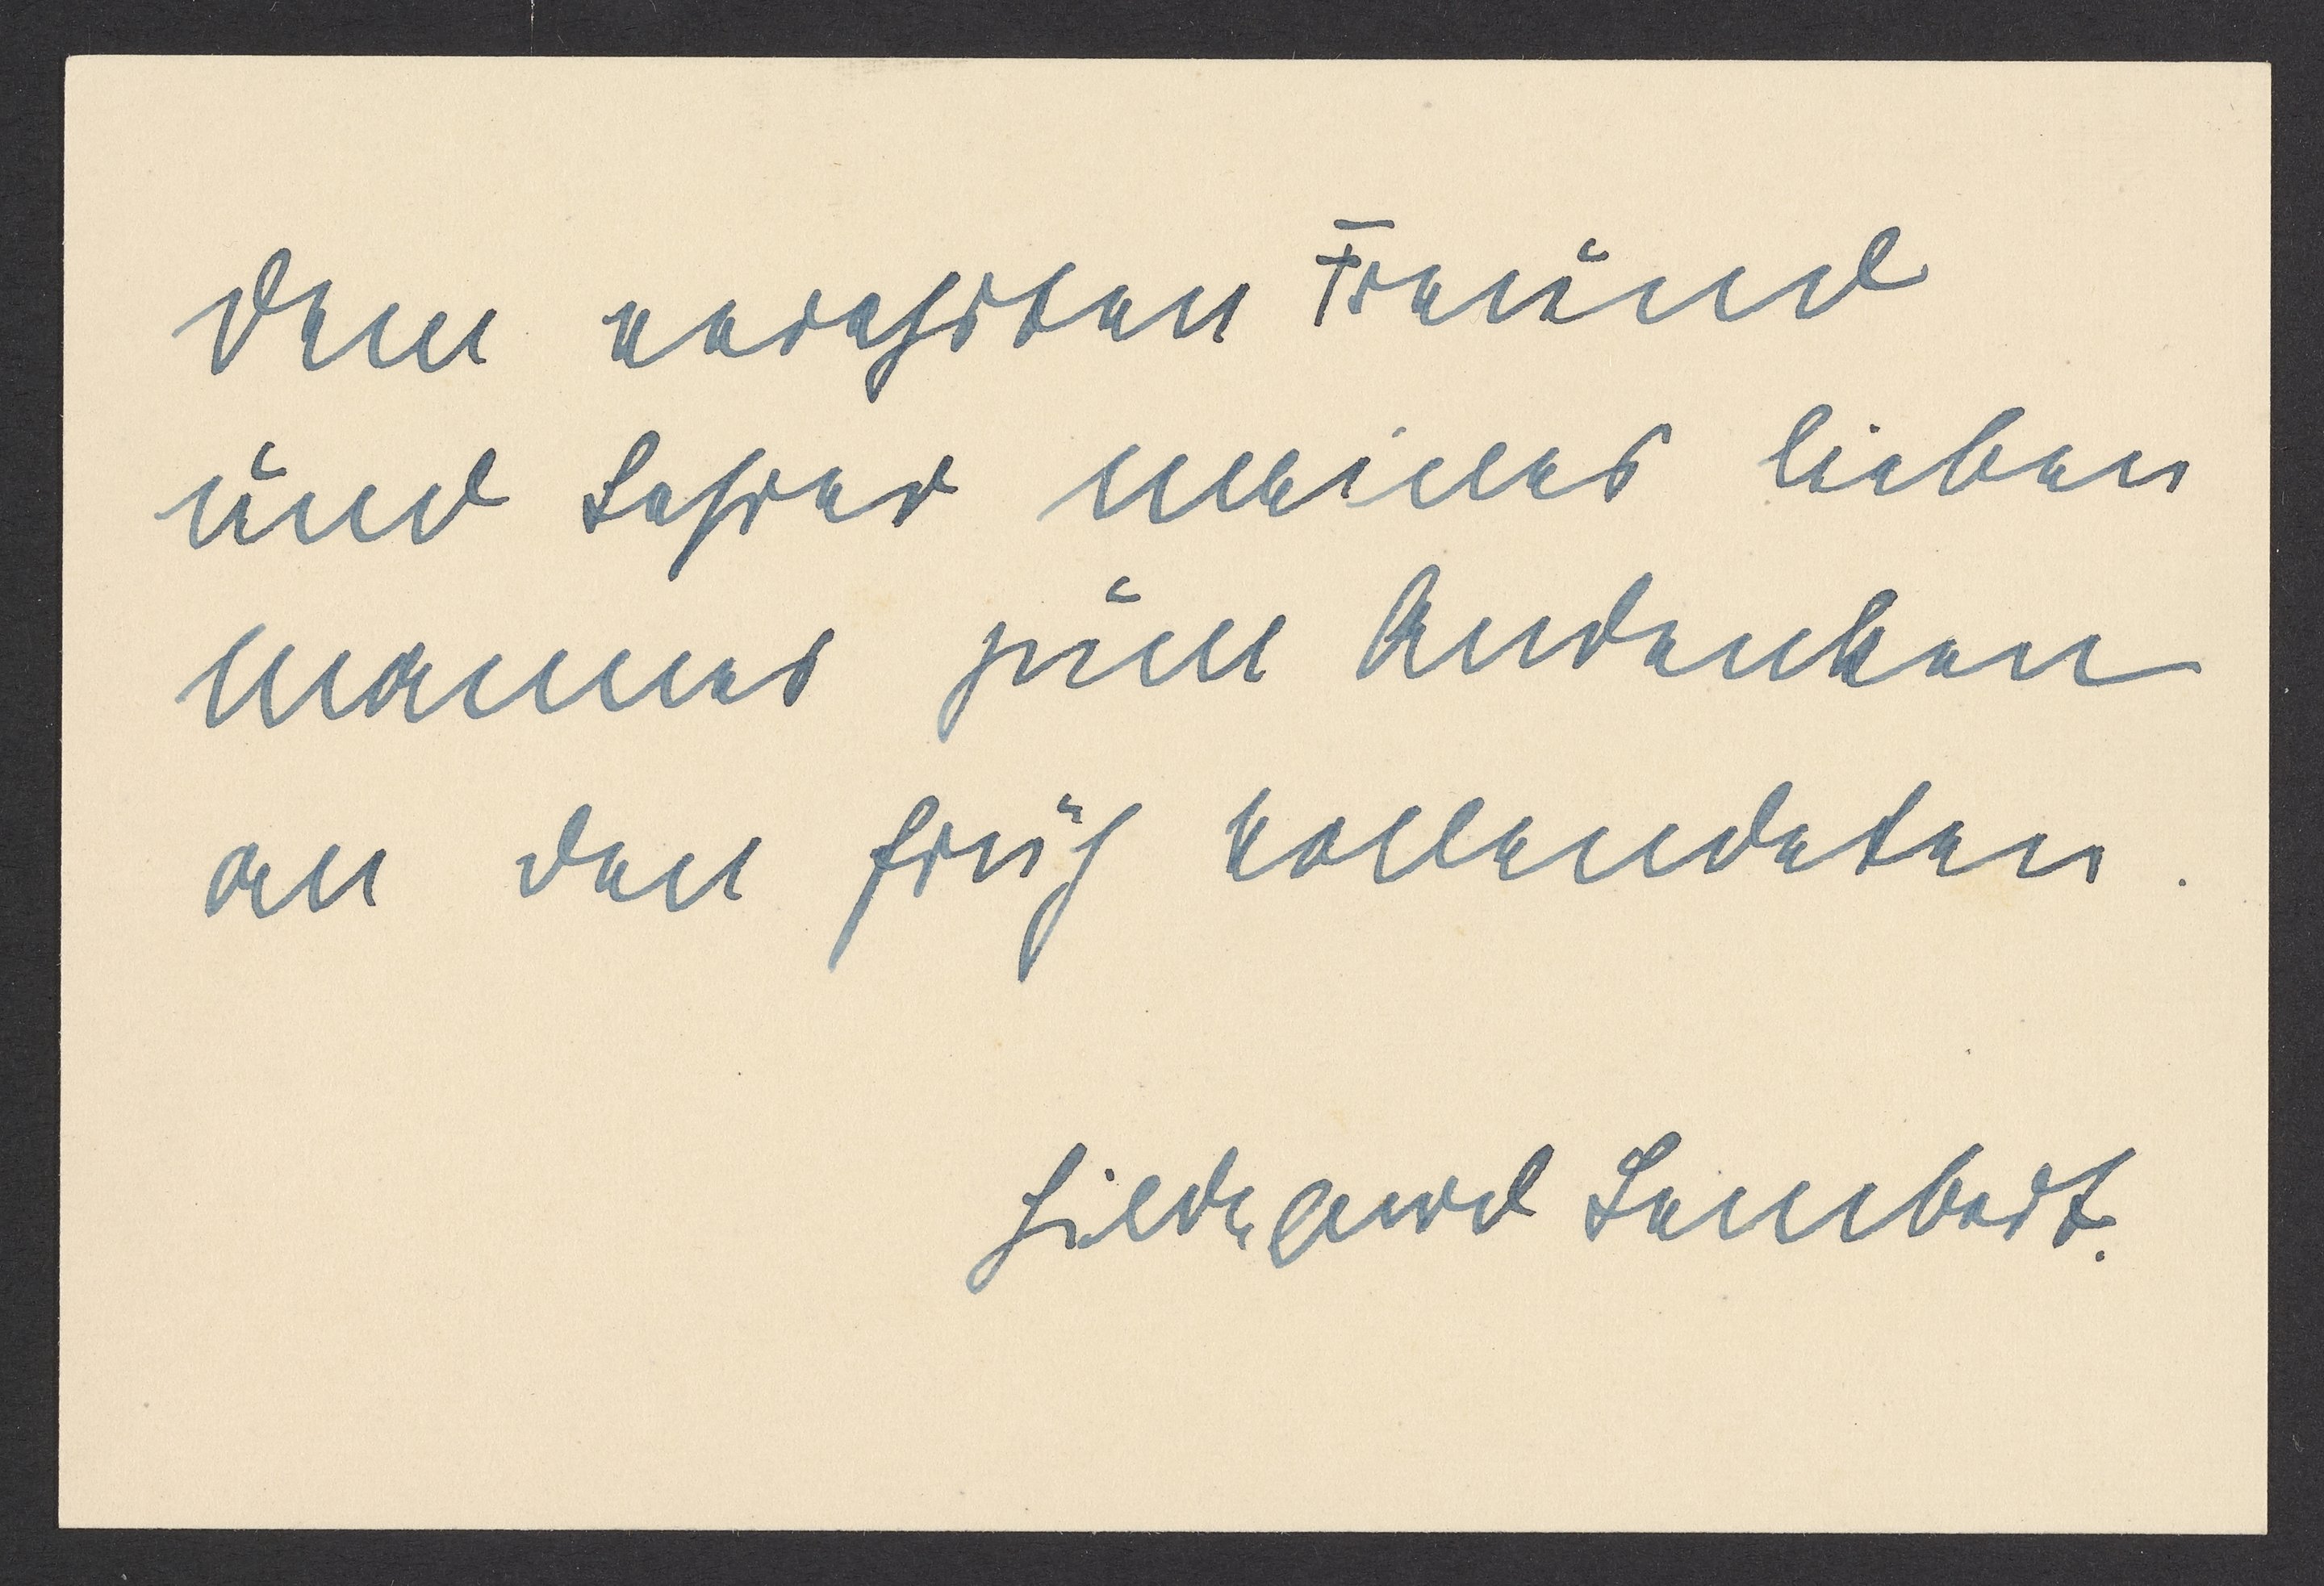 Dem verehrten Freund
und Lehrer meines lieben
Mannes zum Andenken
an den früh vollendeten.
Hildegard Lembert.